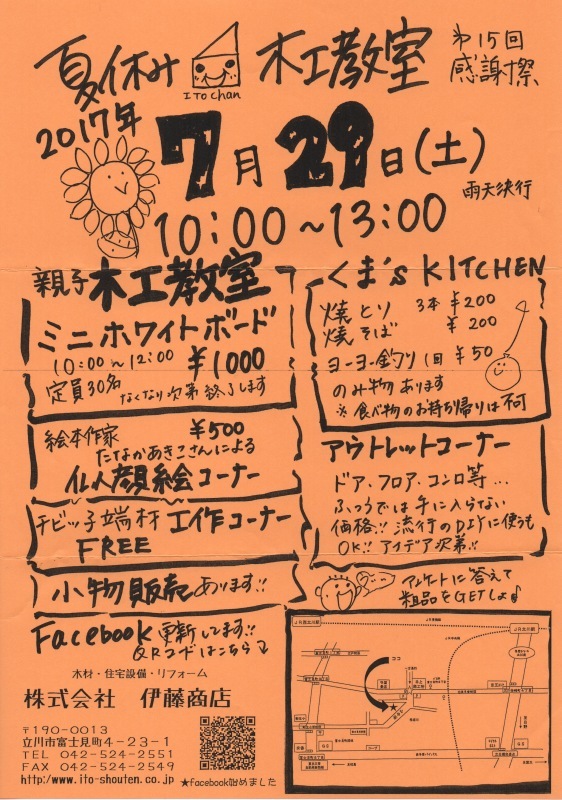 夏休み 木工教室
第15回
感謝祭
ITO chan
2017年
7月29日(土)
雨天決行
10:00～13:00
親子木工教室
ミニホワイトボード
10:00～12:00 ¥1000
定員30名 なくなり次第終了します
くま's KITCHEN
焼とり 3本 ¥200
焼そば ¥200
ヨーヨー釣り 1回 ¥50
のみ物あります
※食べ物のお持ち帰りは不可
絵本作家 ¥500
たなかあきこさんによる
似顔絵コーナー
アウトレットコーナー
ドア、フロア、コンロ等…
ふつうでは手に入らない
価格!! 流行のDIYに使うも
OK!! アイデア次第!!
チビッ子端材工作コーナー
FREE
小物販売あります!!
アンケートに答えて
粗品をGETしよ♪
Facebook更新してます!!
QRコードはこちら
木材・住宅設備・リフォーム
株式会社 伊藤商店
〒190-0013
立川市富士見町4-23-1
TEL 042-524-2551
FAX 042-524-2549
http://www.ito-shouten.co.jp
★facebook始めました
JR西立川駅
JR立川駅
ココ